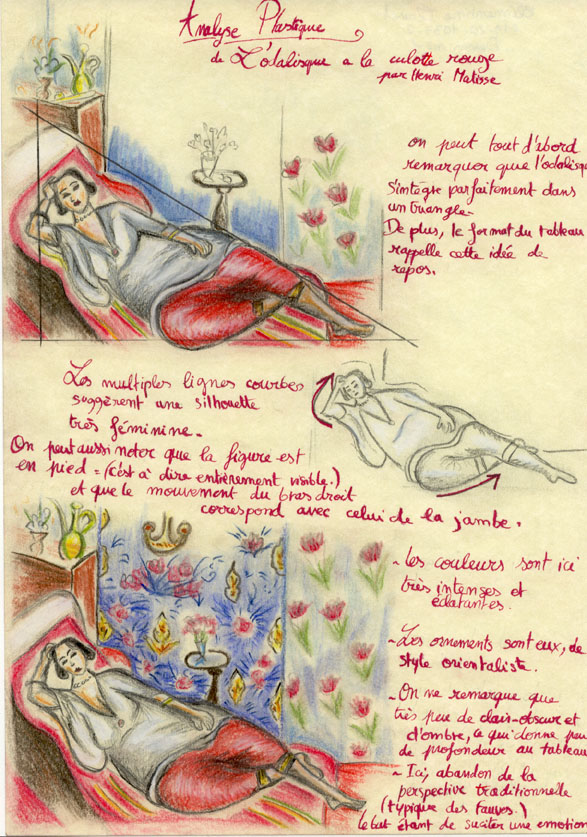 Analyse Plastique
de L'odalisque a la culotte rouge
par Henri Matisse
on peut tout d'abord
remarquer que l'odalisque
s'intègre parfaitement dans
un triangle.
De plus, le format du tableau
rappelle cette idée de
repos.
Les multiples lignes courbes
suggèrent une silhouette
très féminine.
On peut aussi noter que la figure est
en pied = (C'est à dire entièrement visible.)
et que le mouvement du bras droit
correspond avec celui de la jambe.
- Les couleurs sont ici
très intenses et
éclatantes.
- Les ornements sont eux, de
style orientaliste.
- On ne remarque que
très peu de clair-obscur et
d'ombre, ce qui donne peu
de profondeur au tableau
- Ici, abandon de la
perspective traditionnelle
(typique des fauves.)
le but étant de susciter une emotion